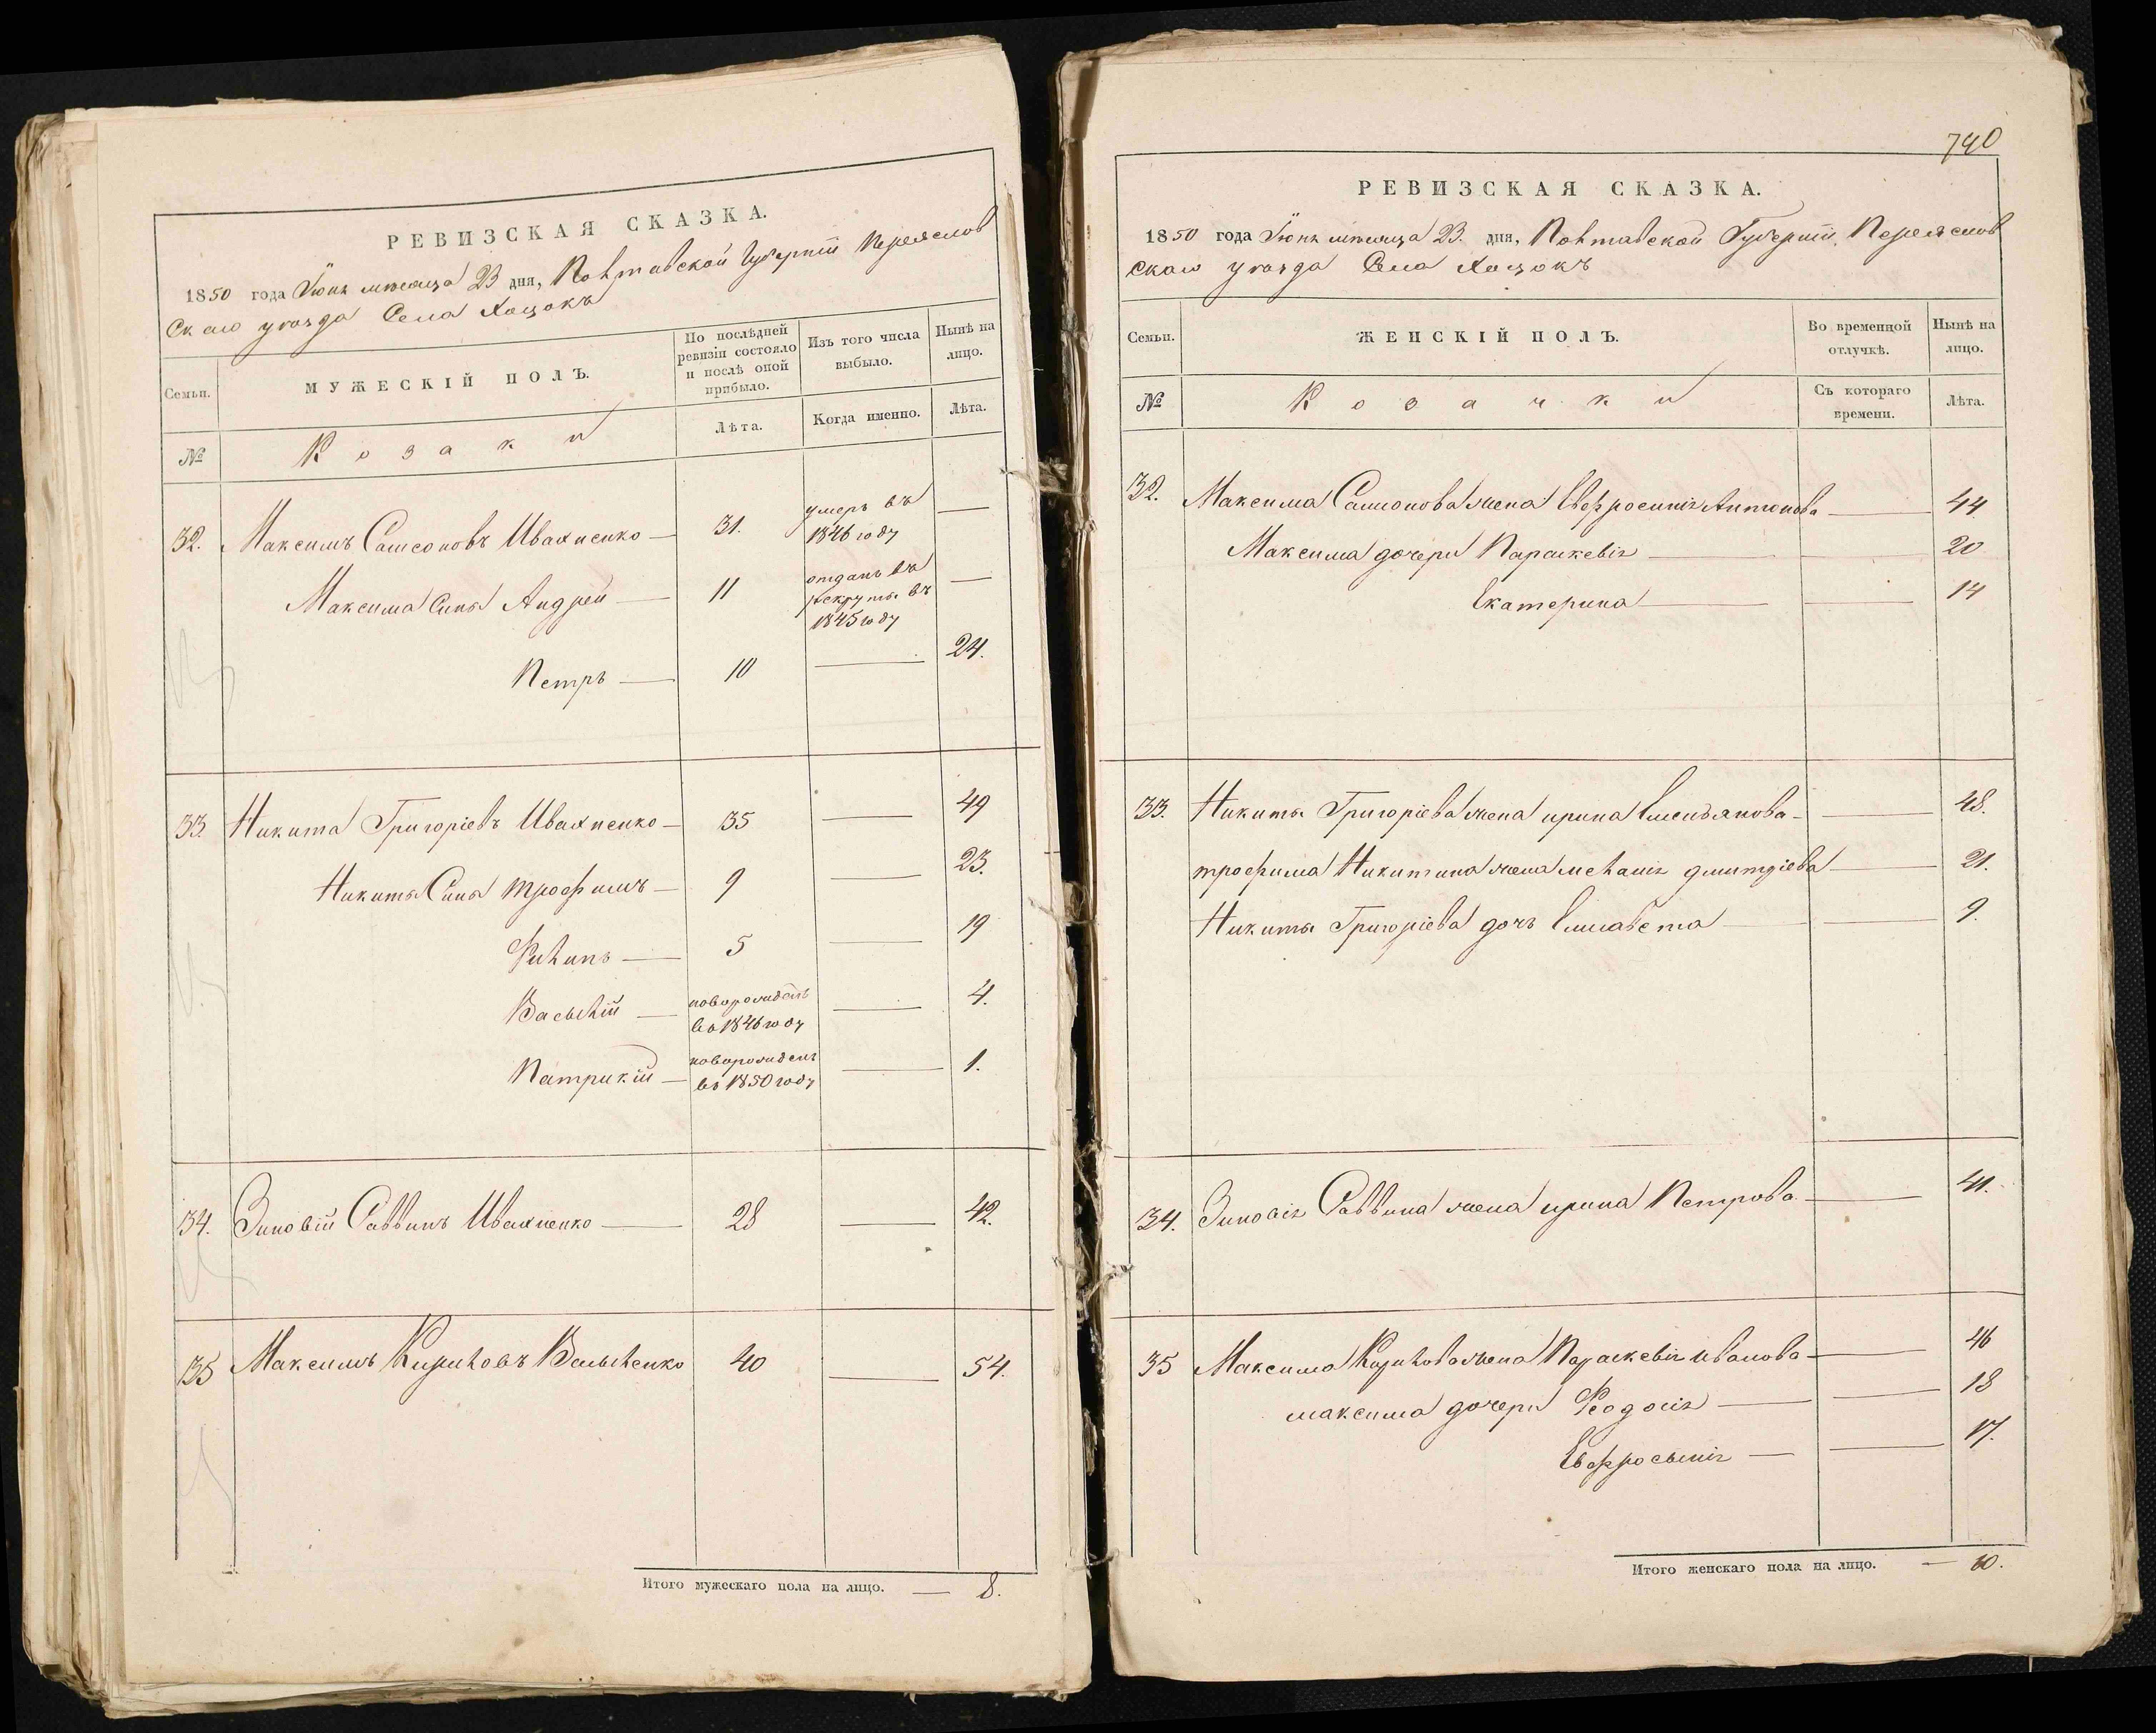 РЕВИЗСКАЯ СКАЗКА.
1850 года Іюнь мѣсяца 23 дня, Полтавской Губерніи Переяслов
скаго уѣзда Села Хоцокъ
Семьи.
МУЖЕСКІЙ ПОЛЪ.
По послѣдней ревизіи состояло и послѣ оной прибыло.
Изъ того числа выбыло.
Нынѣ на лицо.
№
Козаки
Лѣта.
Когда именно.
Лѣта.
32. Максимъ Самсоновъ Ивахненко — 31. умеръ въ 1846 году —
Максима Сынъ Андрей — 11 отданъ въ рекруты въ 1845 году —
Петръ — 10 — 24.
33. Никита Григоріевъ Ивахненко — 35 — 49
Никиты Сынъ трофимъ — 9 — 23.
Филипъ — 5 — 19
Василій — новорожденъ во 1846 году — 4.
Патрикій — новорожденъ въ 1850 году — 1.
34. Зиновій Саввинъ Ивахненко — 28 — 42.
35 Максимъ Кириловъ 40 — 54.
Итого мужескаго пола на лицо. — 8.
740
РЕВИЗСКАЯ СКАЗКА.
1850 года Іюнь мѣсяца 23. дня, Полтавской Губерніи, Переяслов
скаго уѣзда Села Хоцокъ
Семьи.
ЖЕНСКІЙ ПОЛЪ.
Во временной отлучкѣ.
Нынѣ на лицо.
№
Козачки
Съ котораго времени.
Лѣта.
32. Максима Самсонова жена Евфросинія Антонова — 44
Максима дочери Параскевія — — 20
Екатерина — — 14
33. Никиты Григоріева жена ирина Емельянова — — 48.
трофима Никитина жена меланія дмитріева — 21.
Никиты Григоріева дочь Елисавета — — 9.
34. Зиновія Саввина жена ирина Петрова — 41.
35 Максима Кирилова жена Параскевія иванова — 46
максима дочери Феодосія — — 18
Евфросинія — — 17.
Итого женскаго пола на лицо. — 10.